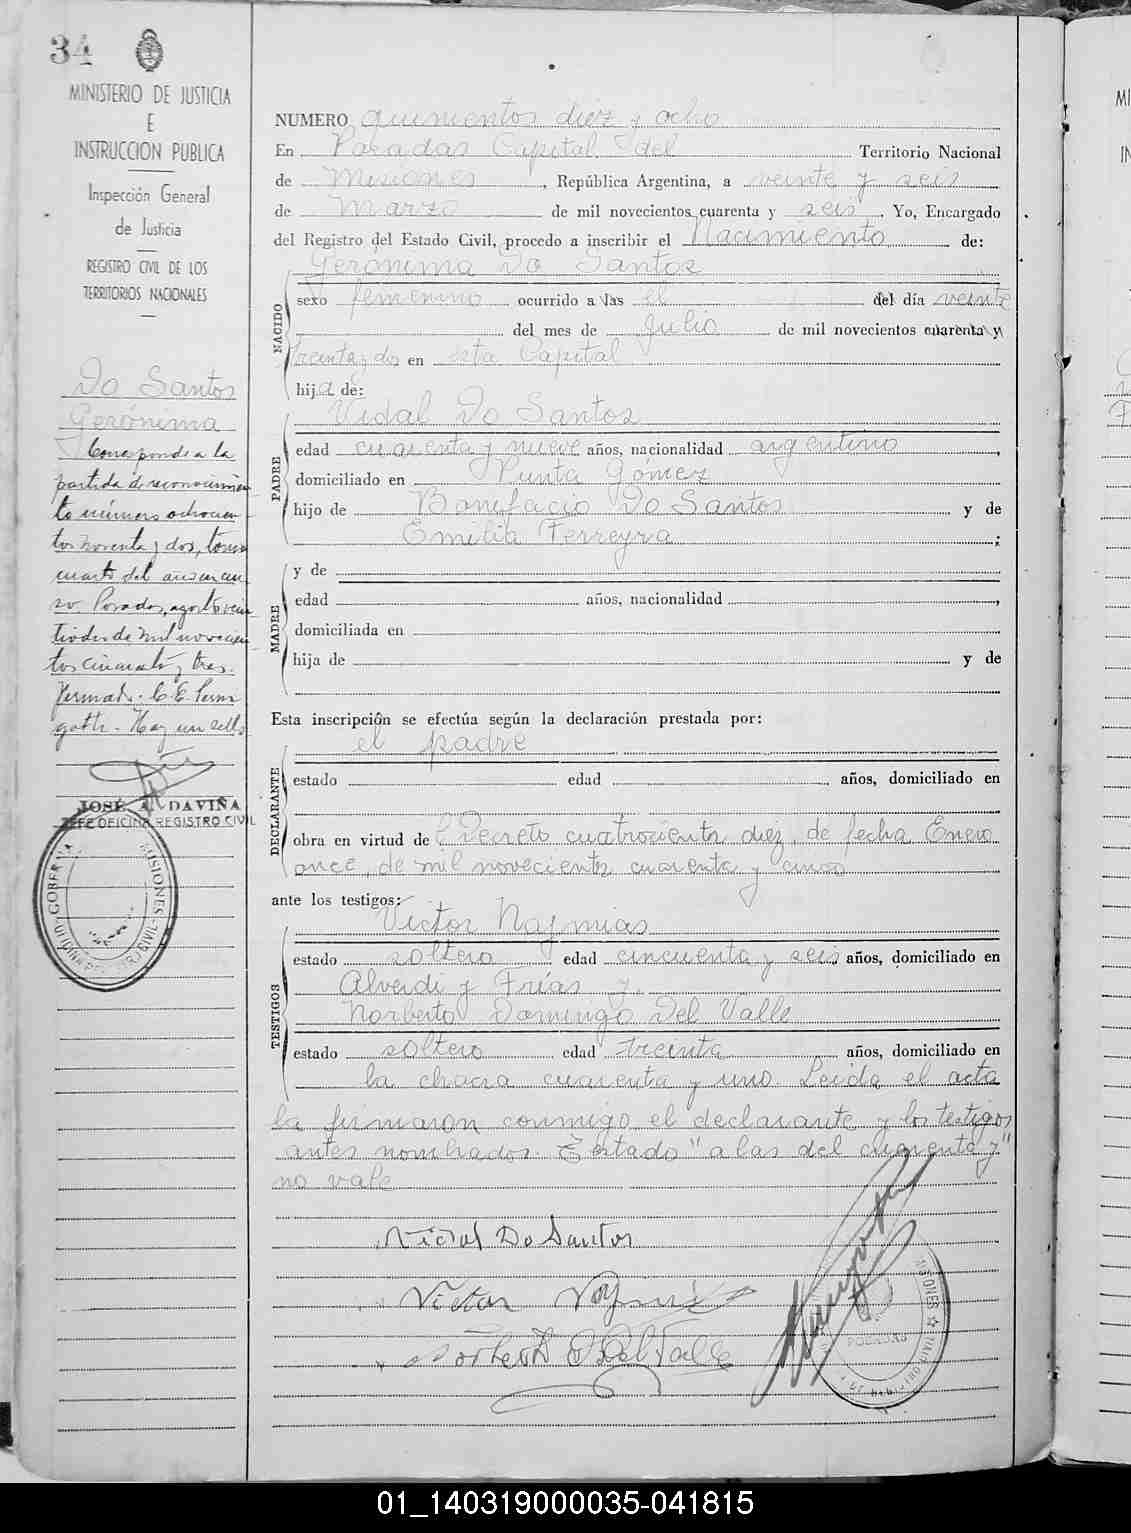 34
MINISTERIO DE JUSTICIA
E
INSTRUCCIÓN PUBLICA
Inspección General
de Justicia
REGISTRO CIVIL DE LOS
TERRITORIOS NACIONALES
Do Santos
Gerónima
Corresponde a la
partida de reconocimien
to número ochocien
tos noventa y dos, tomo
cuarto del año en cur
so. Posadas, agosto vein
tidos de mil novecien
tos cincuenta y tres.
Firmado: C. E.
Hay un sello
JOSÉ A. DAVIÑA
JEFE OFICINA REGISTRO CIVIL
NUMERO quinientos diez y ocho
En Posadas Capital del Territorio Nacional
de Misiones, República Argentina, a veinte y seis
de Marzo de mil novecientos cuarenta y seis. Yo, Encargado
del Registro del Estado Civil, procedo a inscribir el Nacimiento de:
Gerónima Do Santos
NACIDO
sexo femenino ocurrido a las el del día veinte
del mes de Julio de mil novecientos cuarenta y
treinta y dos en esta Capital
hija de:
Vidal Do Santos
PADRE
edad cuarenta y nueve años, nacionalidad argentino,
domiciliado en Punta Gómez
hijo de Bonifacio Do Santos y de
Emilia Ferreyra;
MADRE
y de
edad años, nacionalidad,
domiciliada en
hija de y de
Esta inscripción se efectúa según la declaración prestada por:
el padre
DECLARANTE
estado edad años, domiciliado en
obra en virtud de Decreto cuatrocientos diez, de fecha Enero
once, de mil novecientos cuarenta y cinco
ante los testigos:
Victor Najmias
TESTIGOS
estado soltero edad cincuenta y seis años, domiciliado en
Alverdi y Frías y
Norberto Domingo Del Valle
estado soltero edad treinta años, domiciliado en
la chacra cuarenta y uno. Leída el acta
la firmaron conmigo el declarante y los testigos
antes nombrados. Testado "a las del cuarenta y"
no vale
Vidal Do Santos
Victor
Norberto D Del Valle
POSADAS
MISIONES
01_140319000035-041815